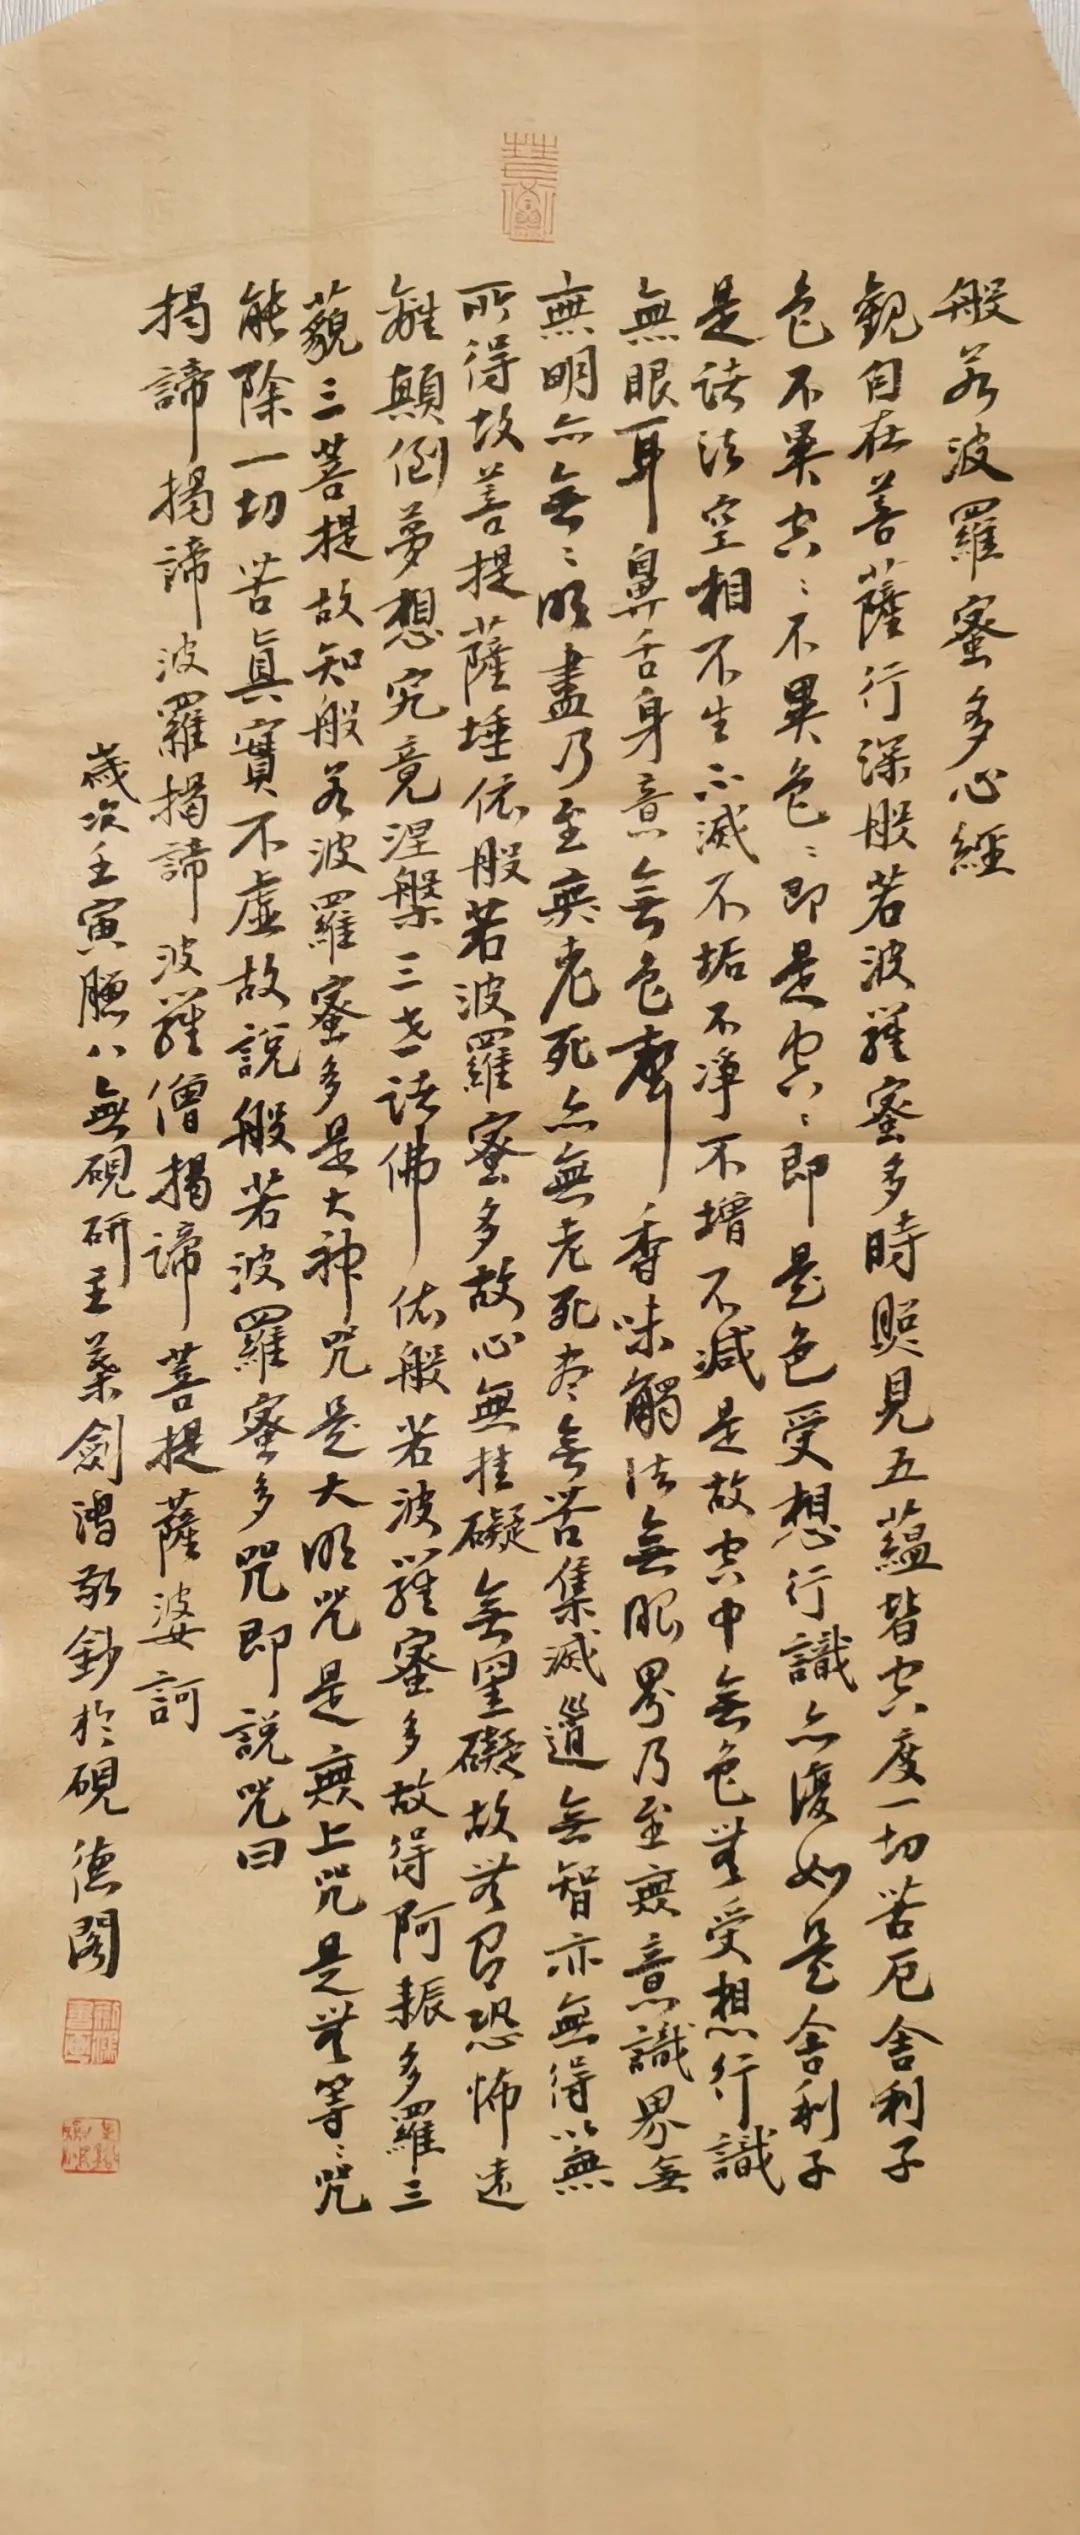 般若波羅蜜多心經
觀自在菩薩行深般若波羅蜜多時照見五蘊皆空度一切苦厄舍利子
色不異空〻不異色〻即是空〻即是色受想行識亦復如是舍利子
是諸法空相不生不滅不垢不淨不增不減是故空中無色無受想行識
無眼耳鼻舌身意無色聲香味觸法無眼界乃至無意識界無
無明亦無〻明盡乃至無老死亦無老死盡無苦集滅道無智亦無得以無
所得故菩提薩埵依般若波羅蜜多故心無挂礙無罣礙故無有恐怖遠
離顛倒夢想究竟涅槃三世諸佛依般若波羅蜜多故得阿耨多羅三
藐三菩提故知般若波羅蜜多是大神咒是大明咒是無上咒是無等〻咒
能除一切苦真實不虛故說般若波羅蜜多咒即說咒曰
揭諦揭諦波羅揭諦波羅僧揭諦菩提薩婆訶
歲次壬寅臘八無硯研主葉劍敬鈔於硯德閣